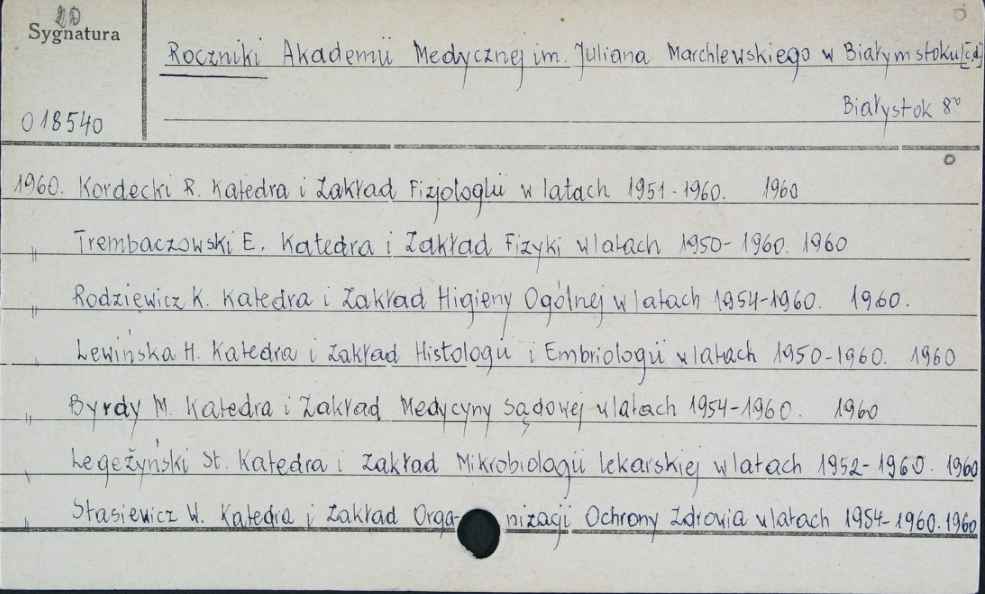 2D
Sygnatura
Roczniki Akademii Medycznej im. Juliana Marchlewskiego w Białymstoku [c.d]
018540
Białystok 8°
1960. Kordecki R. Katedra i Zakład Fizjologii w latach 1951-1960. 1960
" Trembaczowski E. Katedra i Zakład Fizyki w latach 1950-1960. 1960
" Rodziewicz K. Katedra i Zakład Higieny Ogólnej w latach 1954-1960. 1960.
" Lewińska H. Katedra i Zakład Histologii i Embriologii w latach 1950-1960. 1960
" Byrdy M. Katedra i Zakład Medycyny Sądowej w latach 1954-1960. 1960
" Legeżyński St. Katedra i Zakład Mikrobiologii lekarskiej w latach 1952-1960. 1960
" Stasiewicz W. Katedra i Zakład Orga- nizacji Ochrony Zdrowia w latach 1954-1960. 1960